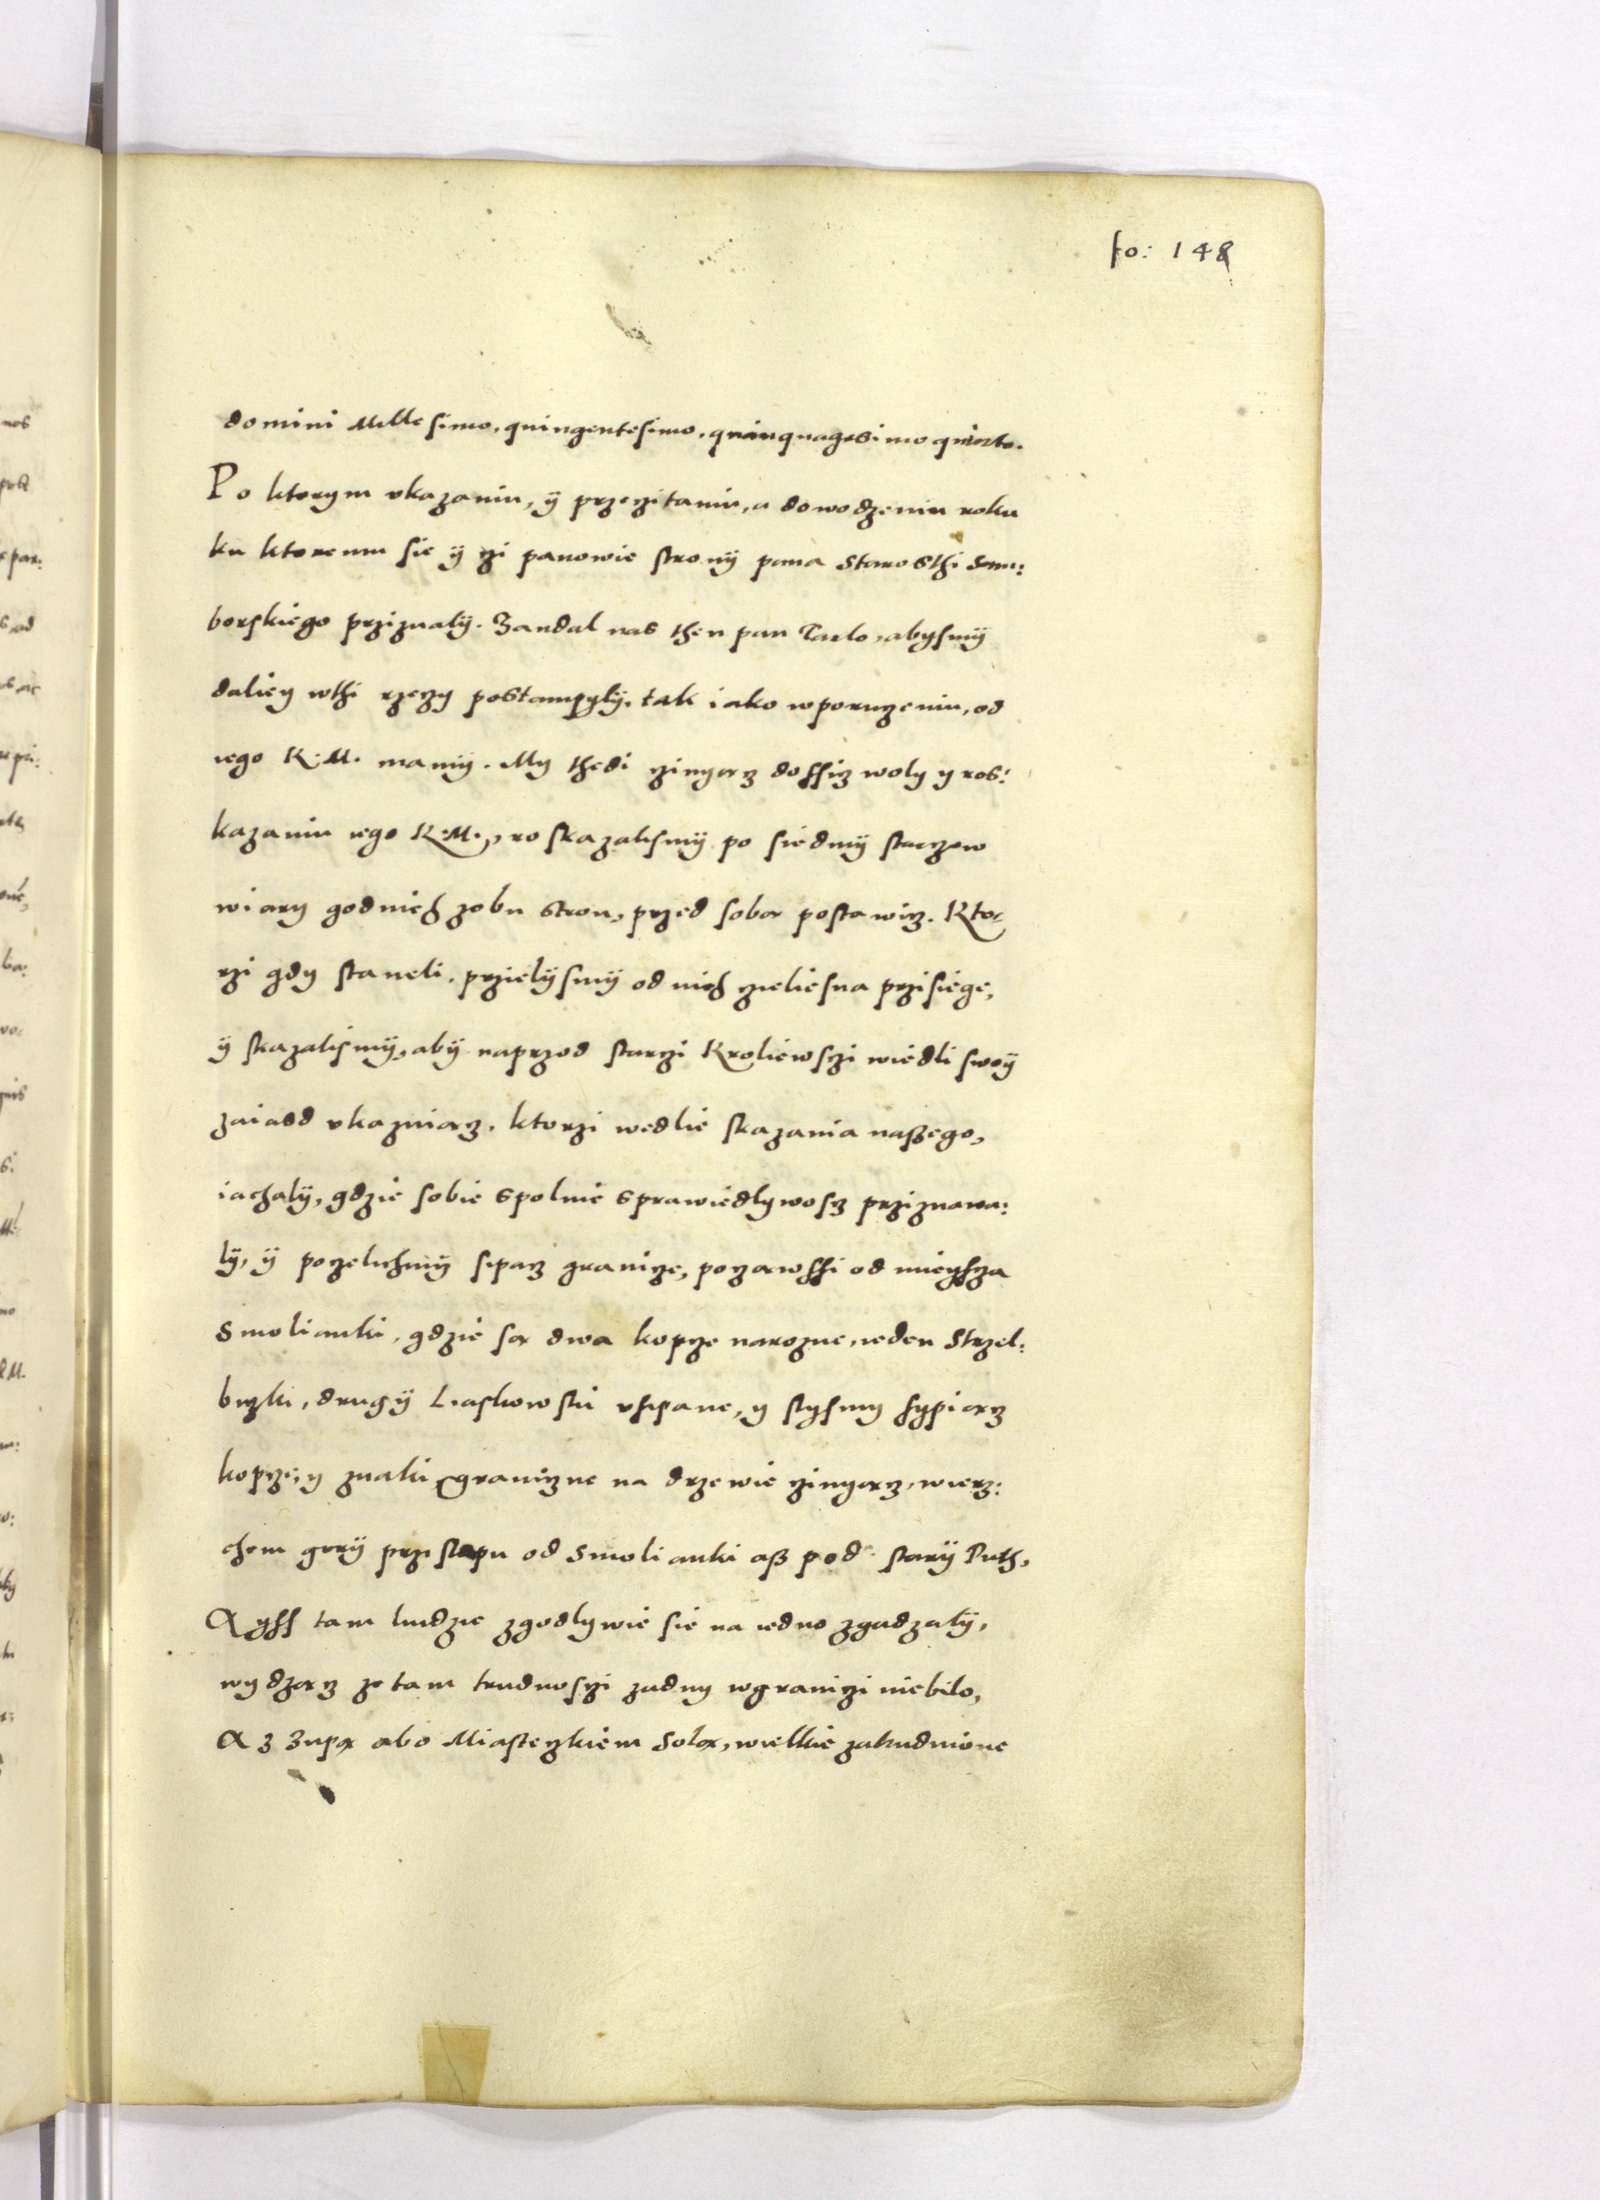 fo: 148
domini Millesimo, quingentesimo, quinquagesimo quinto.
Po ktorym vkazaniu, ÿ przeczitaniu, a dowodzeniu roku
ku ktoremu sie ÿ czi panowie stronÿ pana Starosthi Sam:
borskiego prziznalÿ. Zandal nas then pan Tarlo, abysmÿ
daliey wthi rzeczy postampylÿ, tak iako w poruczeniu, od
iego K: M. mamÿ. My thedi czinyącz dossicz woly y ros:
kazaniu iego K: M., roskazalismÿ po siedmÿ starczow
wiary godnich zobu stron, przed sobą postawicz. Kto:
rzi gdy staneli, przielÿsmÿ od nich czieliesna przisiege,
ÿ skazalismÿ, abÿ naprzod starczi Kroliewsczi wiedli swoÿ
zaiasd vkazuiącz, ktorzi wedlie skazania naszego,
iachalÿ, gdzie sobie spolnie sprawiedlywoscz prziznawa:
lÿ, ÿ poczelichmÿ sipacz granicze, począwssi od mieyscza
Smolianki, gdzie są dwa kopcze narozne, ieden Strzel:
biczki, drugÿ Liaskowski vsipane, y slysmy sypiącz
kopcze, y znaki graniczne na drzewie czinyącz, wierz:
chem gorÿ przistapu od Smolianki asz pod starÿ Puth,
A yss tam ludzie zgodlywie sie na iedno zgadzalÿ,
wydzącz ze tam trudnosczi zadny wgraniczi niebilo,
A z Zupą abo Miasteczkiem Solą, wielkie zatrudnione